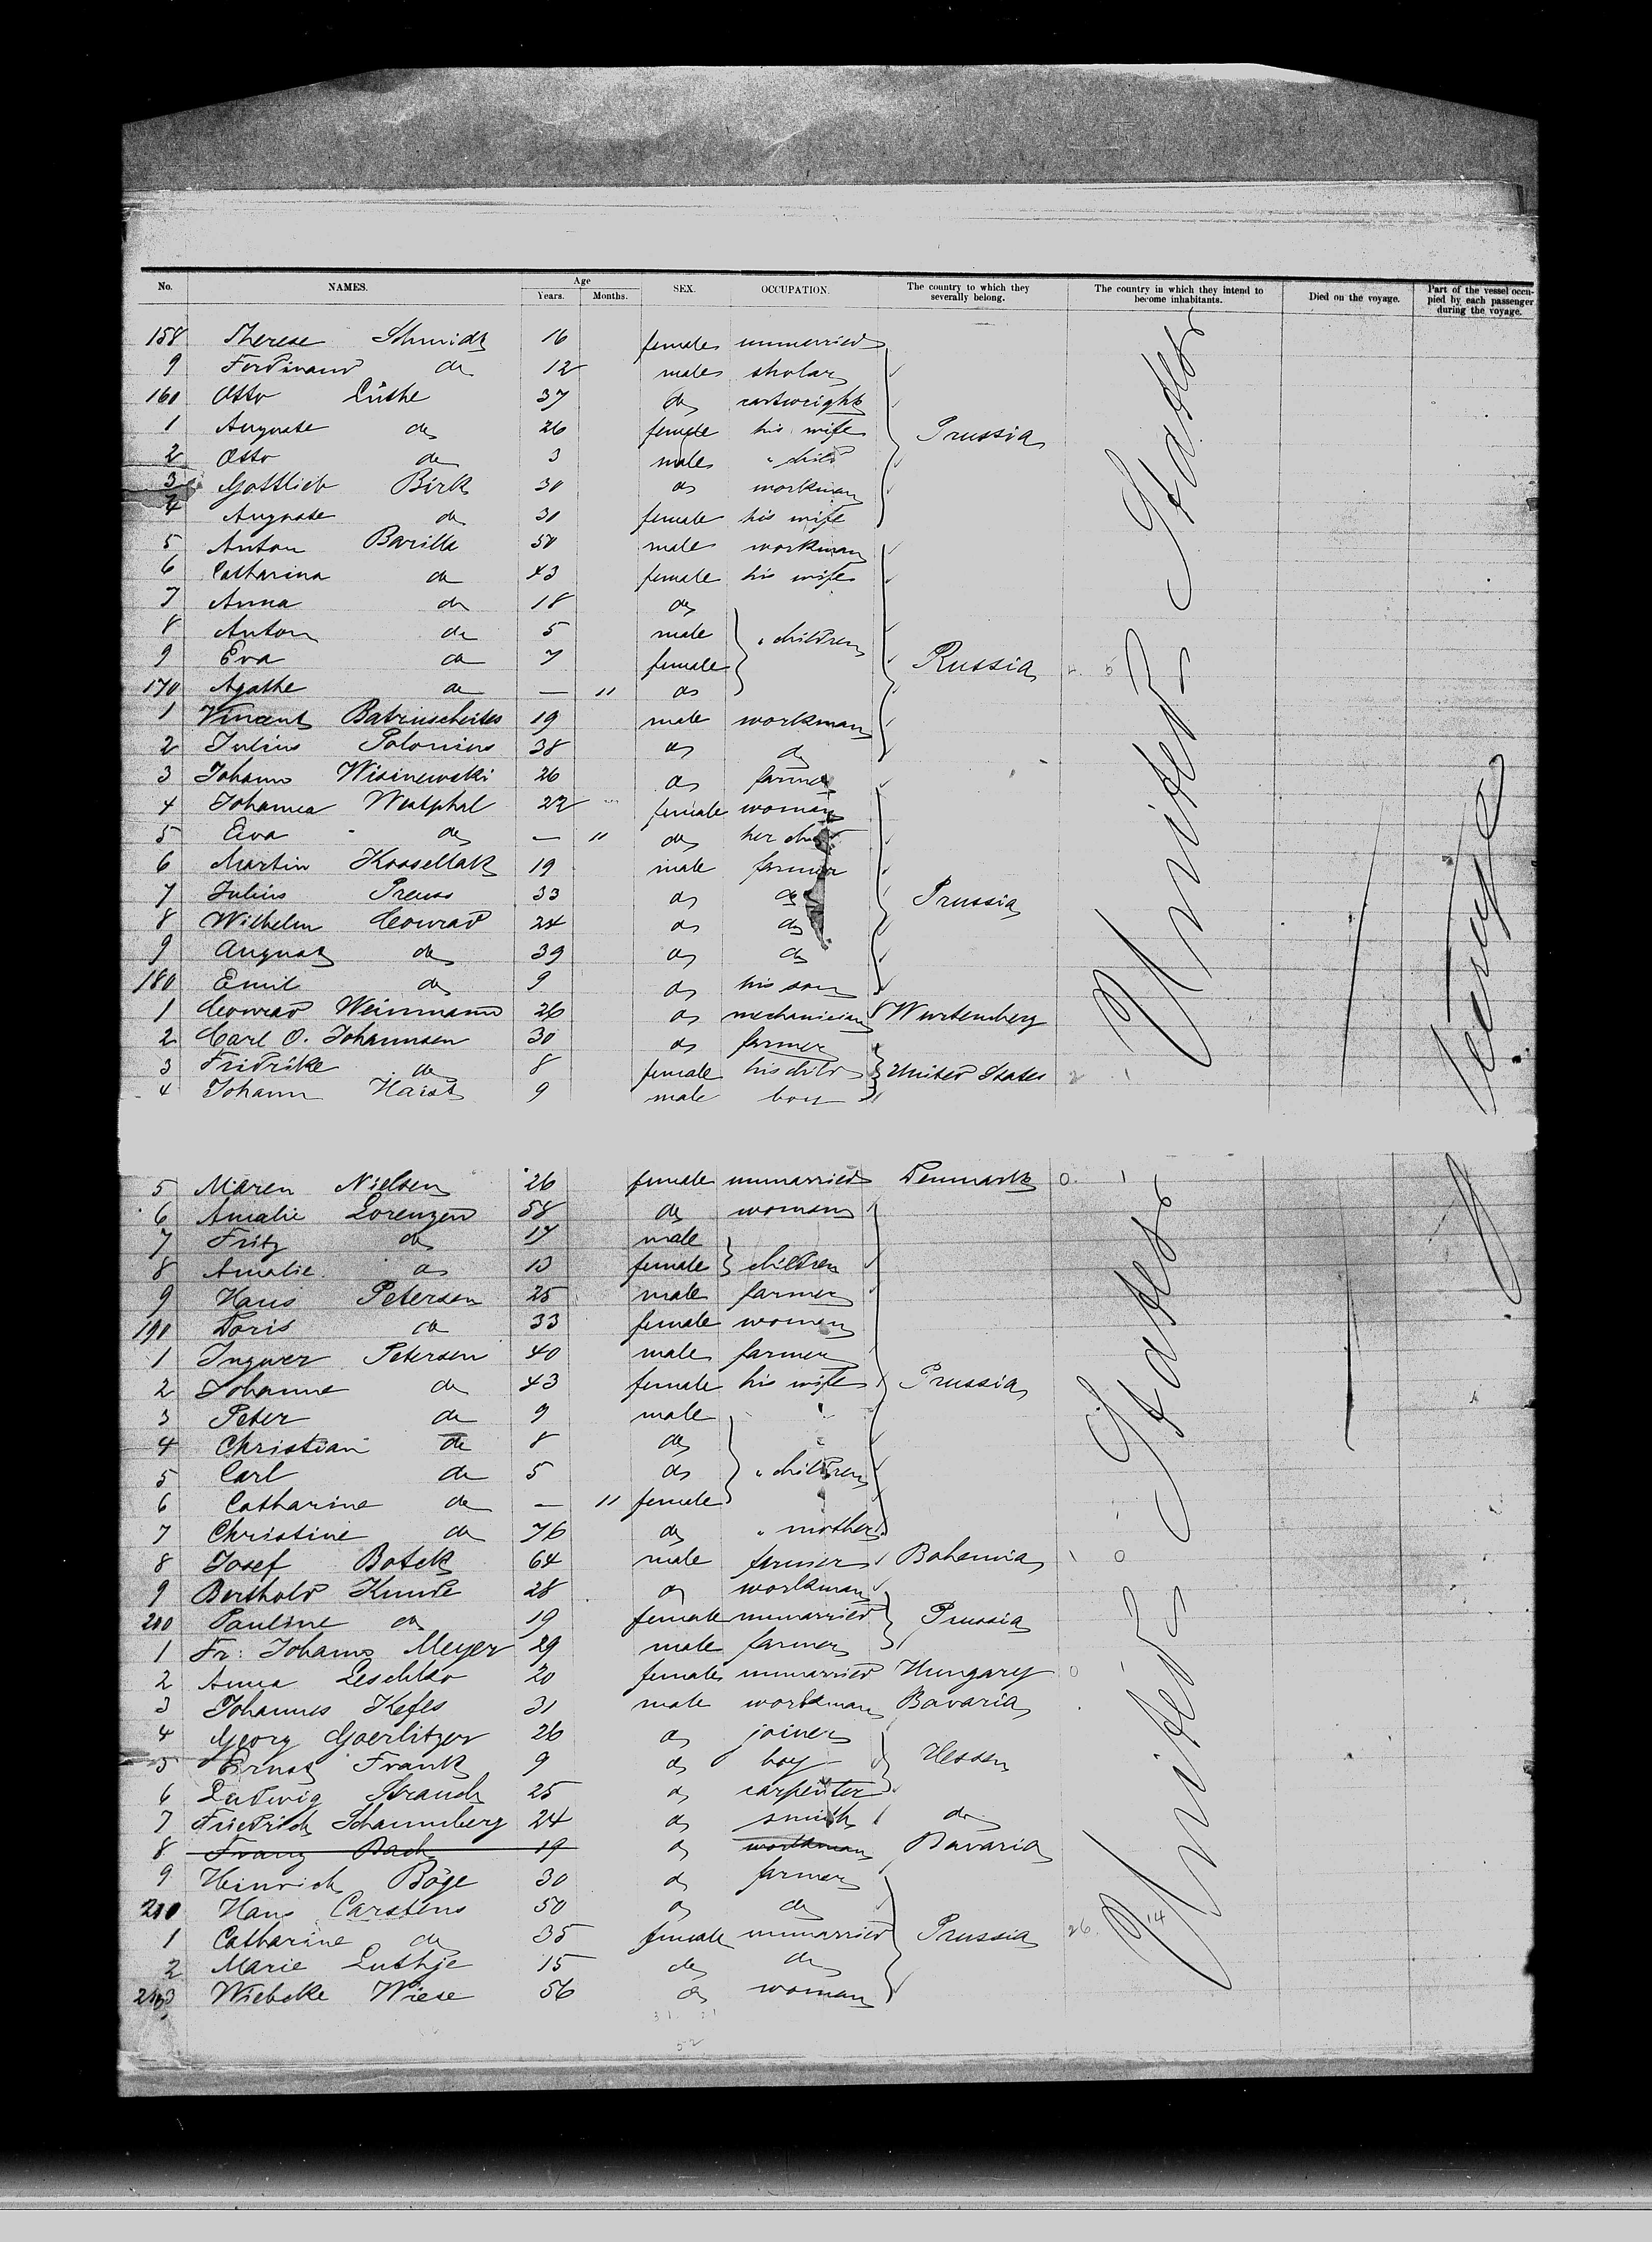 No. NAMES. Age Years. Months. SEX. OCCUPATION. The country to which they severally belong. The country in which they intend to become inhabitants. Died on the voyage. Part of the vessel occupied by each passenger during the voyage.
158 Therese Schmidt 16 female unmerried
9 Ferdinand do 12 male skolar
160 Otto Lüthe 37 do cartwright
1 Auguste do 26 female his wife Prussia
2 Otto do 3 male " child
3 Gottlieb Birk 30 do workman
4 Auguste do 31 female his wife
5 Anton Barilla 50 male workman
6 Catharina do 43 female his wife
7 Anna do 18 do
8 Anton do 5 male " children
9 Eva do 7 female Russia
170 Agathe do — 11 do
1 Vincent 19 male workman
2 Julius Polonius 38 do do
3 Johann Wisinewski 26 do farmer
4 Johanna Westphal 22 female woman
5 Eva do — 11 do her child
6 Martin Kossellak 19 male farmer
7 Julius Preuss 33 do do Prussia
8 Wilhelm Conrad 24 do do
9 August do 39 do do
180 Emil do 9 do his son
1 Conrad Weinmann 26 do mechanician Wurtemberg
2 Carl O. Johannsen 30 do farmer
3 Fridrike do 8 female his child United States
4 Johann Haist 9 male boy
United States
Steerage
5 Maren Nielsen 26 female unmarried Denmark 0 1
6 Amalie Lorenzen 58 do woman
7 Fritz do 17 male
8 Amalie do 13 female children
9 Hans Petersen 25 male farmer
190 Doris do 33 female women
1 Ingwer Petersen 40 male farmer
2 Johanne do 43 female his wife Prussia
3 Peter do 9 male
4 Christian do 8 do
5 Carl do 5 do " children
6 Catharine do — 11 female
7 Christine do 76 do " mother
8 Josef Botek 64 male farmer Bohemia 1 0
9 Berthold Kunde 28 do workman
200 Pauline do 19 female unmarried Prussia
1 Fr: Johann Meyer 29 male farmer
2 Anna Leschko 20 female unmarried Hungary 0
3 Johannes Kefes 31 male workman Bavaria
4 Georg Goerlitzer 26 do joiner
5 Ernst Frank 9 do boy Hessen
6 Ludwig Strauch 25 do carpenter
7 Friedrich Schaumberg 24 do smith do
8 Franz Bach 19 do workman Bavaria
9 Heinrich Böge 30 do farmer
210 Hans Carstens 50 do do
1 Catharine do 35 female unmarried Prussia 26. 14
2 Marie Luthje 15 do do
213 Wiebcke Wiese 56 do woman
United States
52